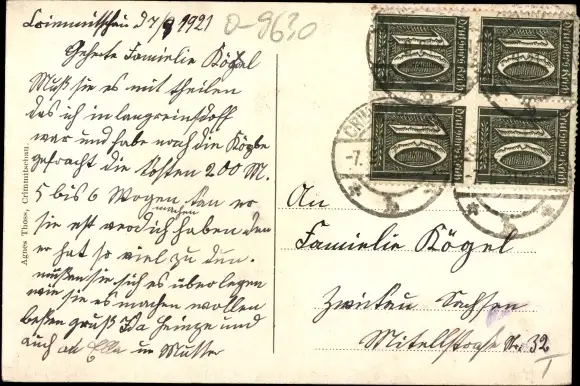 Crimmitschau d 7/9 1921
0-9630
Geehrte Familie Kögel
Muß sie es mit theilen
das ich in langreinsdorf
war und habe noch die Körbe
gefracht die kosten 200 M.
5 bis 6 Wogen kan er
machen
sie erst haben den
er hat so viel zu dun.
müßen sie sich es überlegen
wie sie es machen wollen
besten gruß Ida Heinze und
auch Ella un Mutter
Agnes Thoss, Crimmitschau.
Deutsches Reich
10
Deutsches Reich
10
Deutsches Reich
10
Deutsches Reich
10
CRIM
-7.
An
Familie Kögel
Zwickau Sachsen
Mittelstraße Nr. 32
I